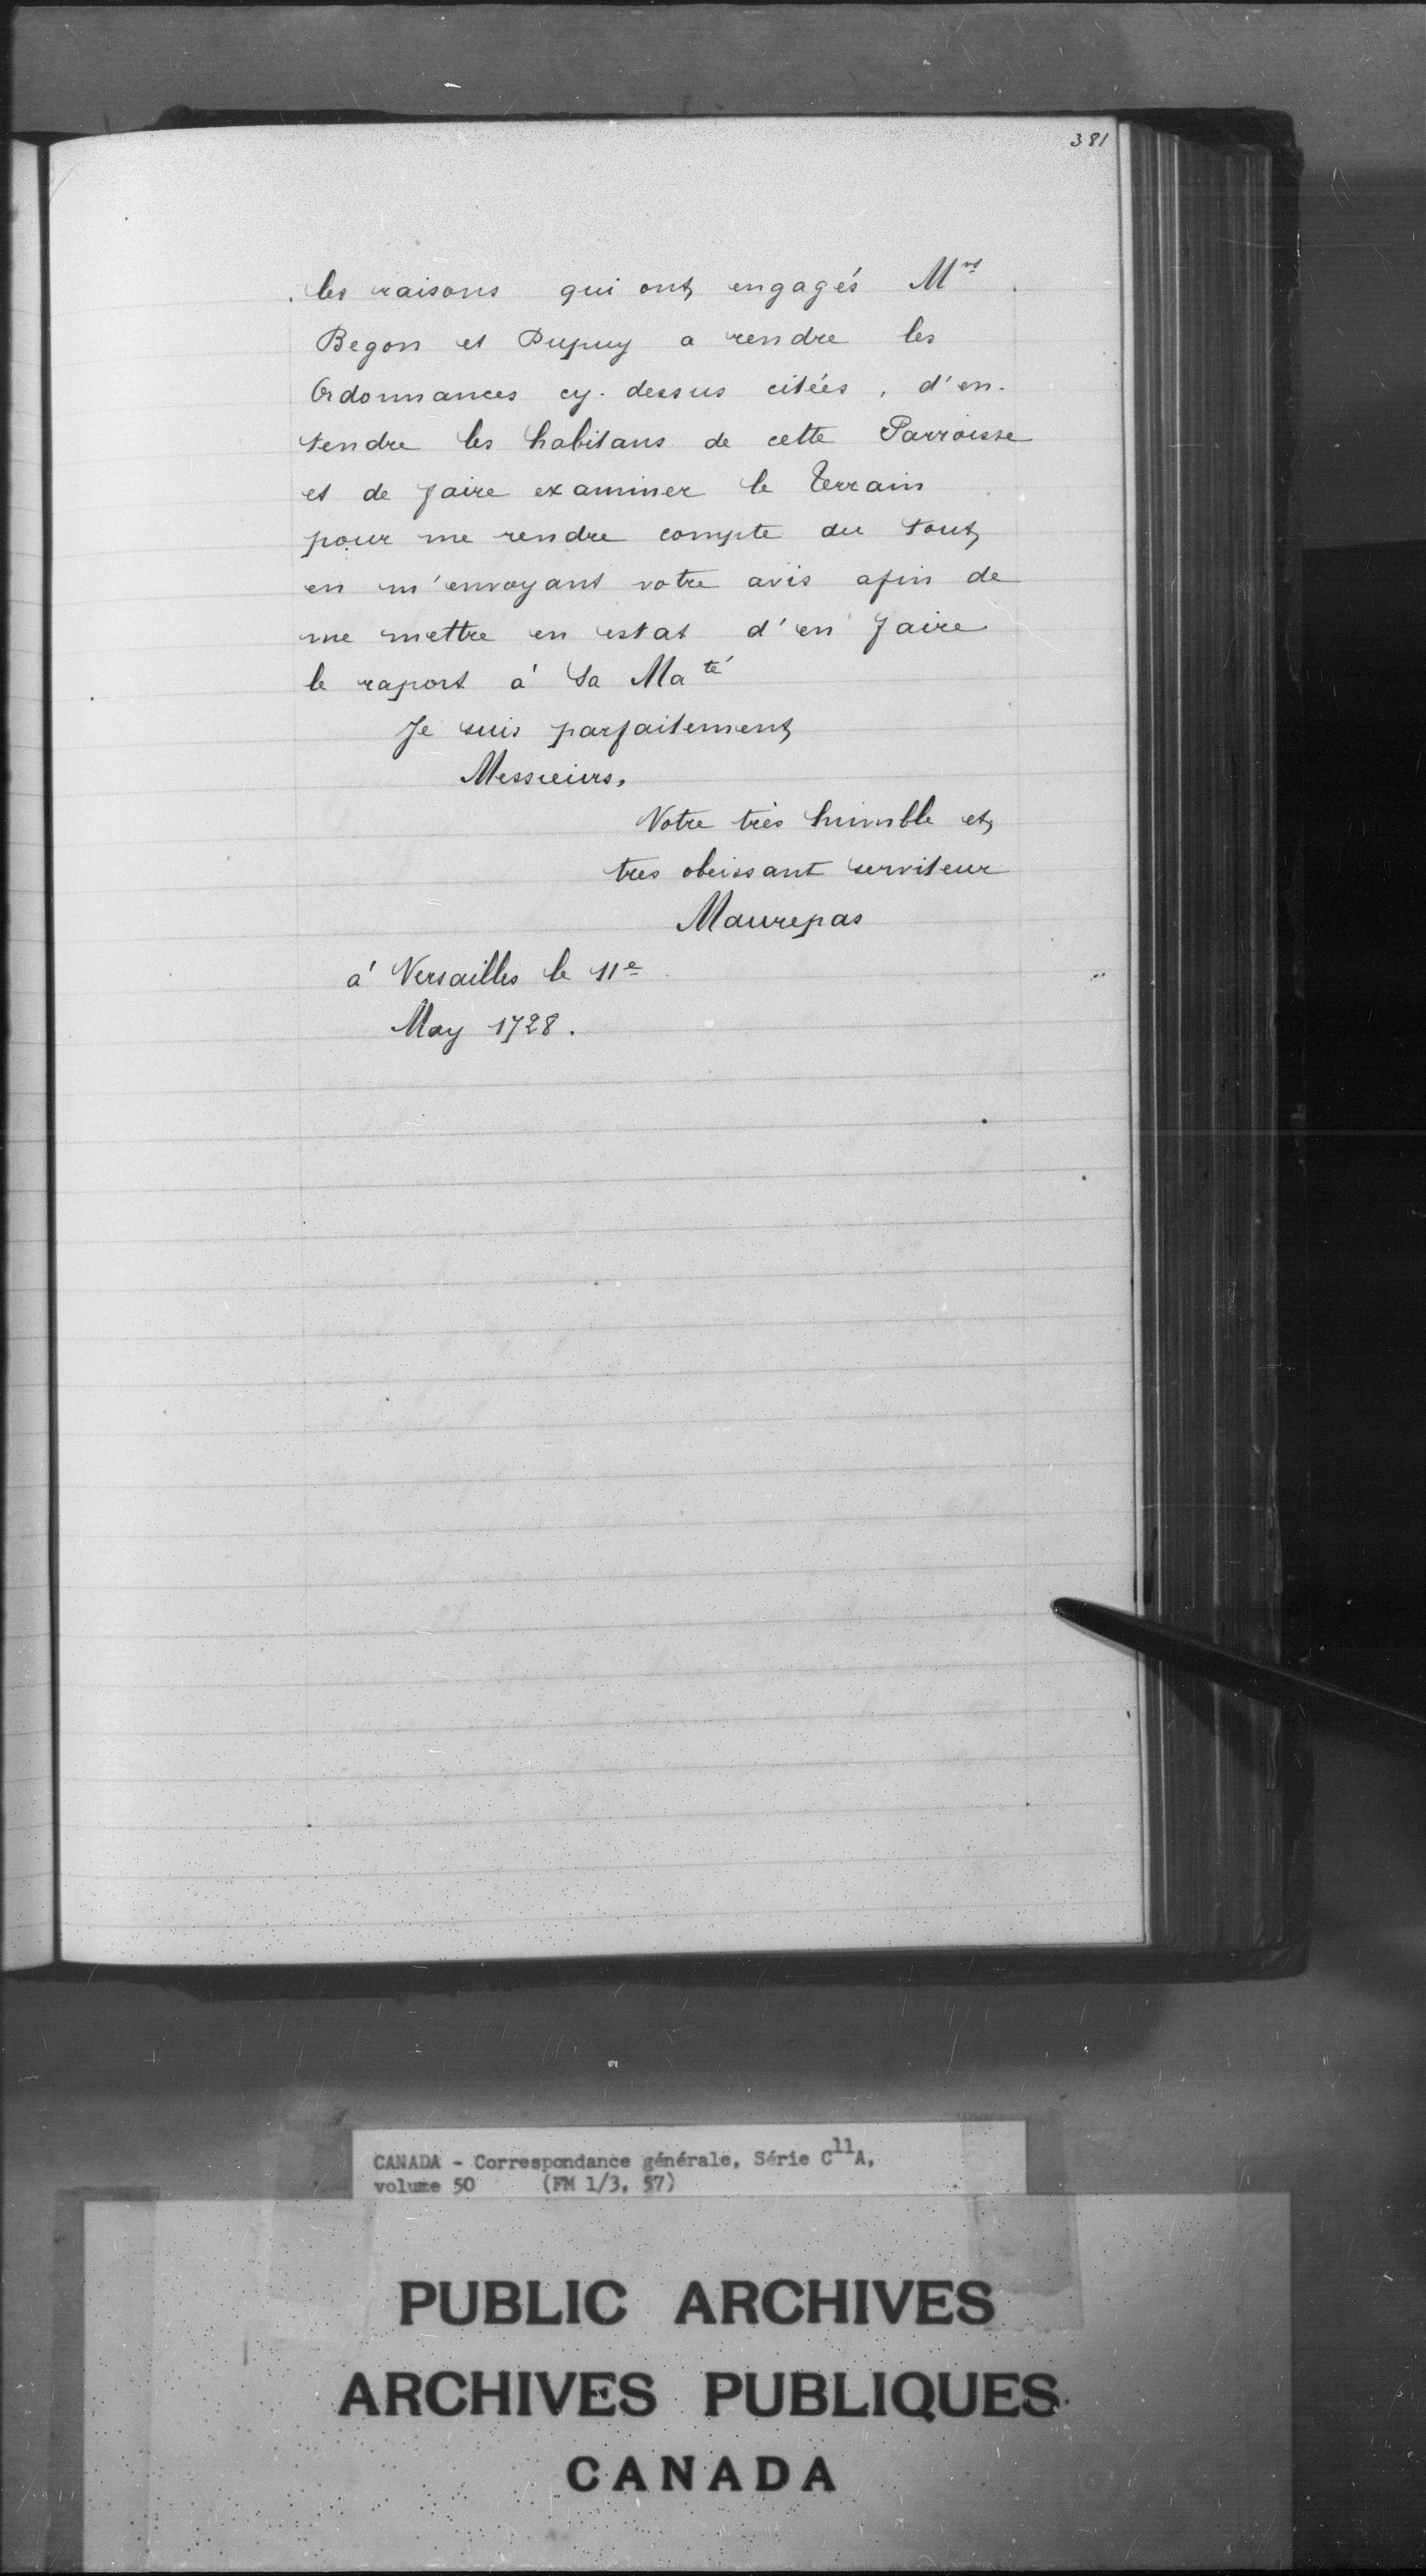 381
les raisons qui ont engagés Mrs
Begon et Dupuy a rendre les
Ordonnances cy-dessus citées, d'en-
tendre les habitans de cette Parroisse
et de faire examiner le terrain
pour me rendre compte du tout,
en m'envoyant votre avis afin de
me mettre en estat d'en faire
le raport à Sa Maté
Je suis parfaitement
Messieurs,
Votre très humble et
tres obeissant serviteur
Maurepas
à Versailles le 11e
May 1728.
CANADA - Correspondance générale, Série C11A,
volume 50 (FM 1/3, 57)
PUBLIC ARCHIVES
ARCHIVES PUBLIQUES
CANADA